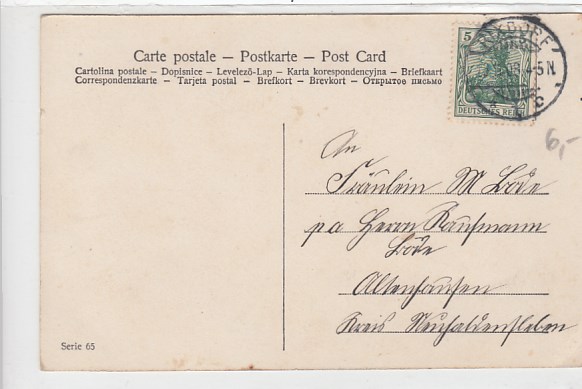 Carte postale – Postkarte – Post Card
Cartolina postale – Dopisnice – Levelező-Lap – Karta korespondencyjna – Briefkaart
Correspondenzkarte – Tarjeta postal – Brefkort – Brevkort – Открытое письмо
5
RIXDORF
4-5 N.
C
DEUTSCHES REICH
6,-
An
Fräulein M Bode
pa Herrn Kaufmann
Bode
Altenhausen
Kreis Neuhaldensleben
Serie 65